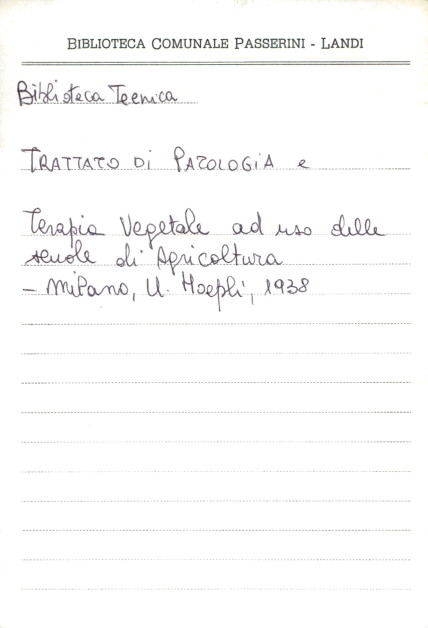 BIBLIOTECA COMUNALE PASSERINI - LANDI
Biblioteca Tecnica
TRATTATO DI PATOLOGIA e
Terapia Vegetale ad uso delle
scuole di Agricoltura
- Milano, U. Hoepli, 1938